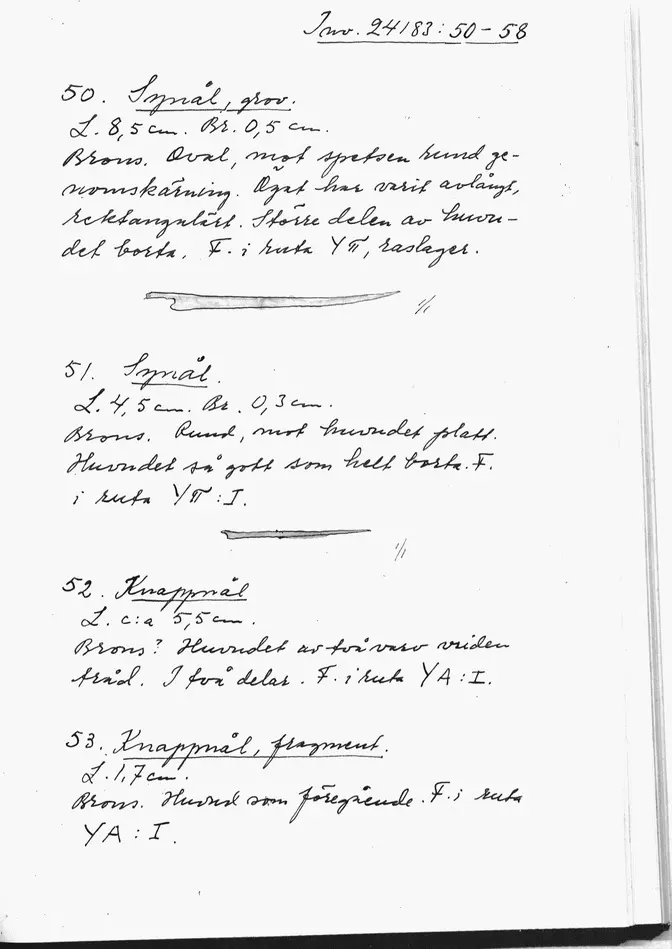 Inv. 24183:50-58
50. Synål, grov.
L. 8,5 cm. Br. 0,5 cm.
Brons. Oval, mot spetsen rund ge-
nomskärning. Ögat har varit avlångt,
rektangulärt. Större delen av huvu-
det borta. F. i ruta YΠ, raslager.
1/1
51. Synål.
L. 4,5 cm. Br. 0,3 cm.
Brons. Rund, mot huvudet platt.
Huvudet så gott som helt borta. F.
i ruta YΠ:I.
1/1
52. Knappnål
L. c:a 5,5 cm.
Brons? Huvudet av två varv vriden
tråd. I två delar. F. i ruta YA:I.
53. Knappnål, fragment.
L. 1,7 cm.
Brons. Huvud som föregående. F. i ruta
YA:I.